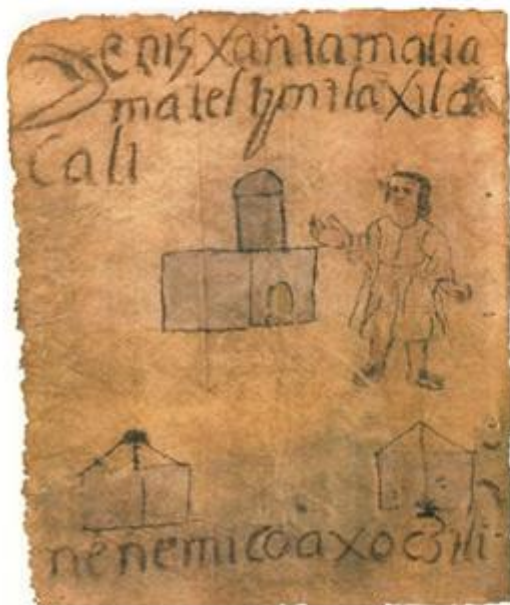 Yenis xantamalia
matel ymtlaxila
Cali
nenemicoaxoczin